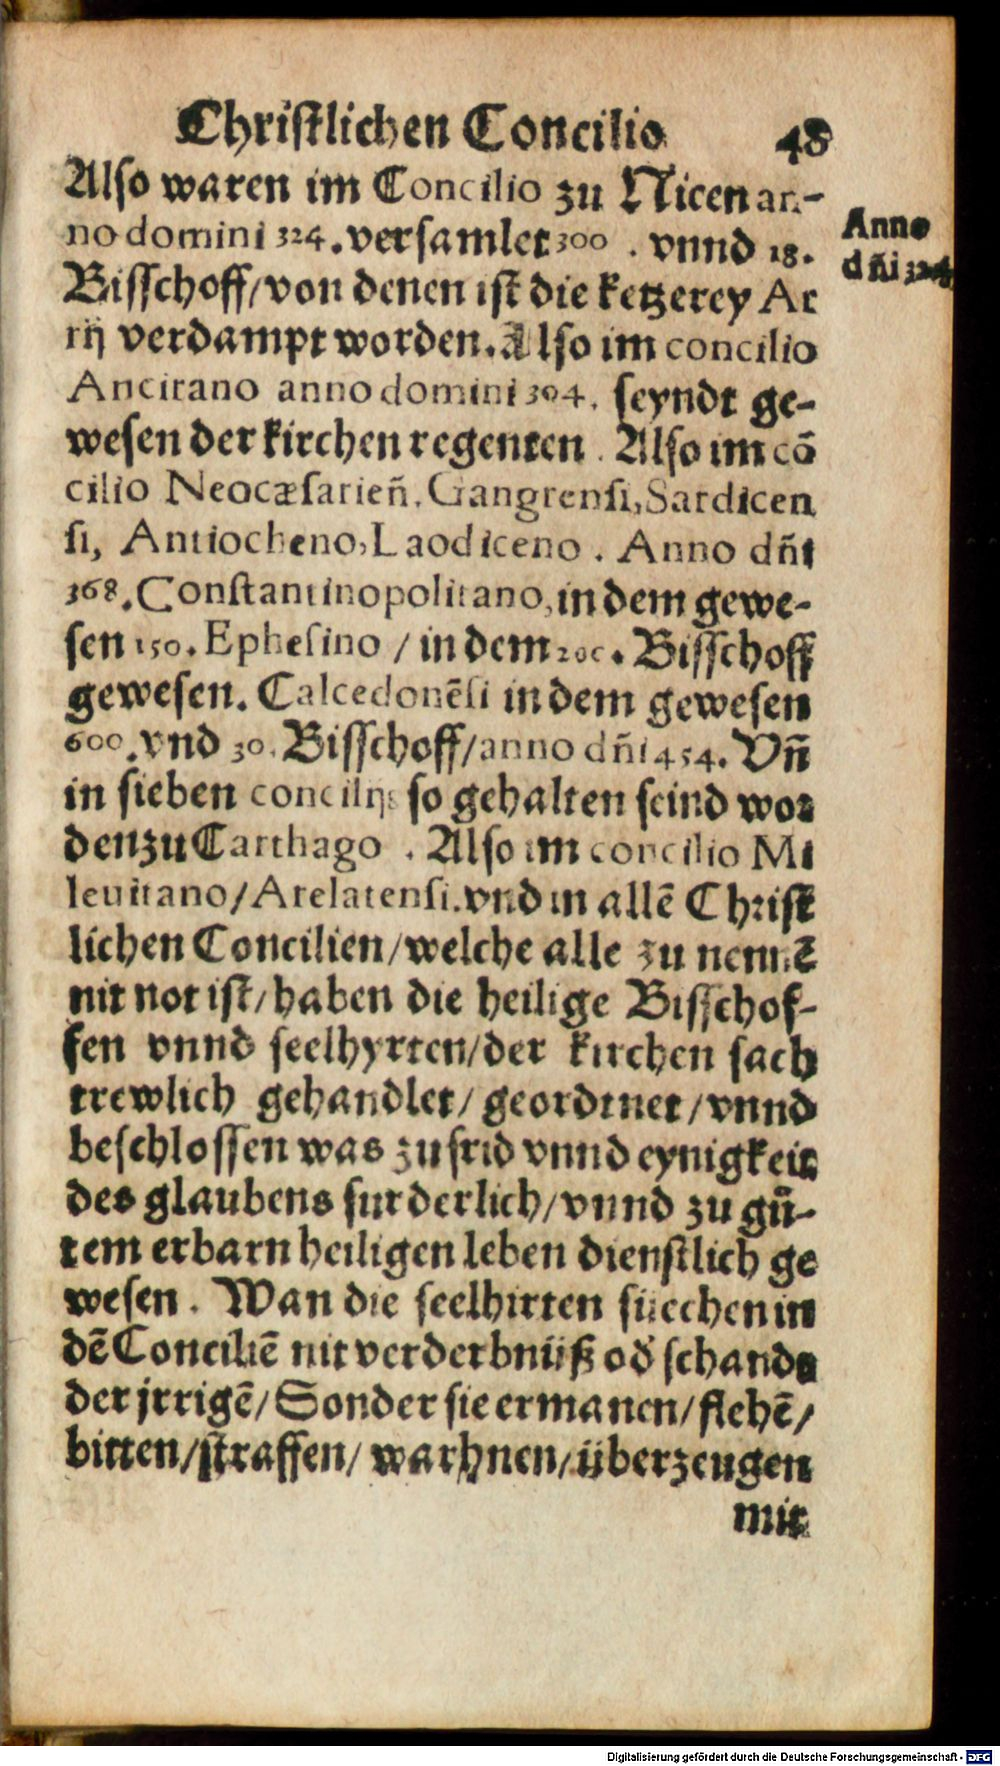 Christlichen Concilio 48
Also waren im Concilio zu Nicen an-
no domini 324. versamlet 300 . vnnd 18.
Anno
dñi 324
Bisschoff/von denen ist die ketzerey Ar
rij verdampt worden. Also im concilio
Ancirano anno domini 304. seyndt ge-
wesen der kirchen regenten . Also im cō
cilio Neocæsarieñ. Gangrensi, Sardicen
si, Antiocheno, Laodiceno . Anno dñi
368. Constantinopolitano, in dem gewe-
sen 150. Ephesino / in dem 200. Bisschoff
gewesen. Calcedonēsi in dem gewesen
600. vnd 30. Bisschoff/anno dñi 454. Vñ
in sieben concilijs so gehalten seind wor
den zu Carthago . Also im concilio Mi
leuitano/Arelatensi. vnd in allē Christ
lichen Concilien/welche alle zu nennē
nit not ist/haben die heilige Bisschof-
fen vnnd seelhyrten/der kirchen sach
trewlich gehandlet/geordtnet/vnnd
beschlossen was zu frid vnnd eynigkeit
des glaubens furderlich/vnnd zu gů-
tem erbarn heiligen leben dienstlich ge
wesen . Wan die seelhirten suechen in
dē Conciliē nit verderbnüß oď schande
der jrrigē/Sonder sie ermanen/flehē/
bitten/straffen/warhnen/überzeugen
mit
Digitalisierung gefördert durch die Deutsche Forschungsgemeinschaft - DFG